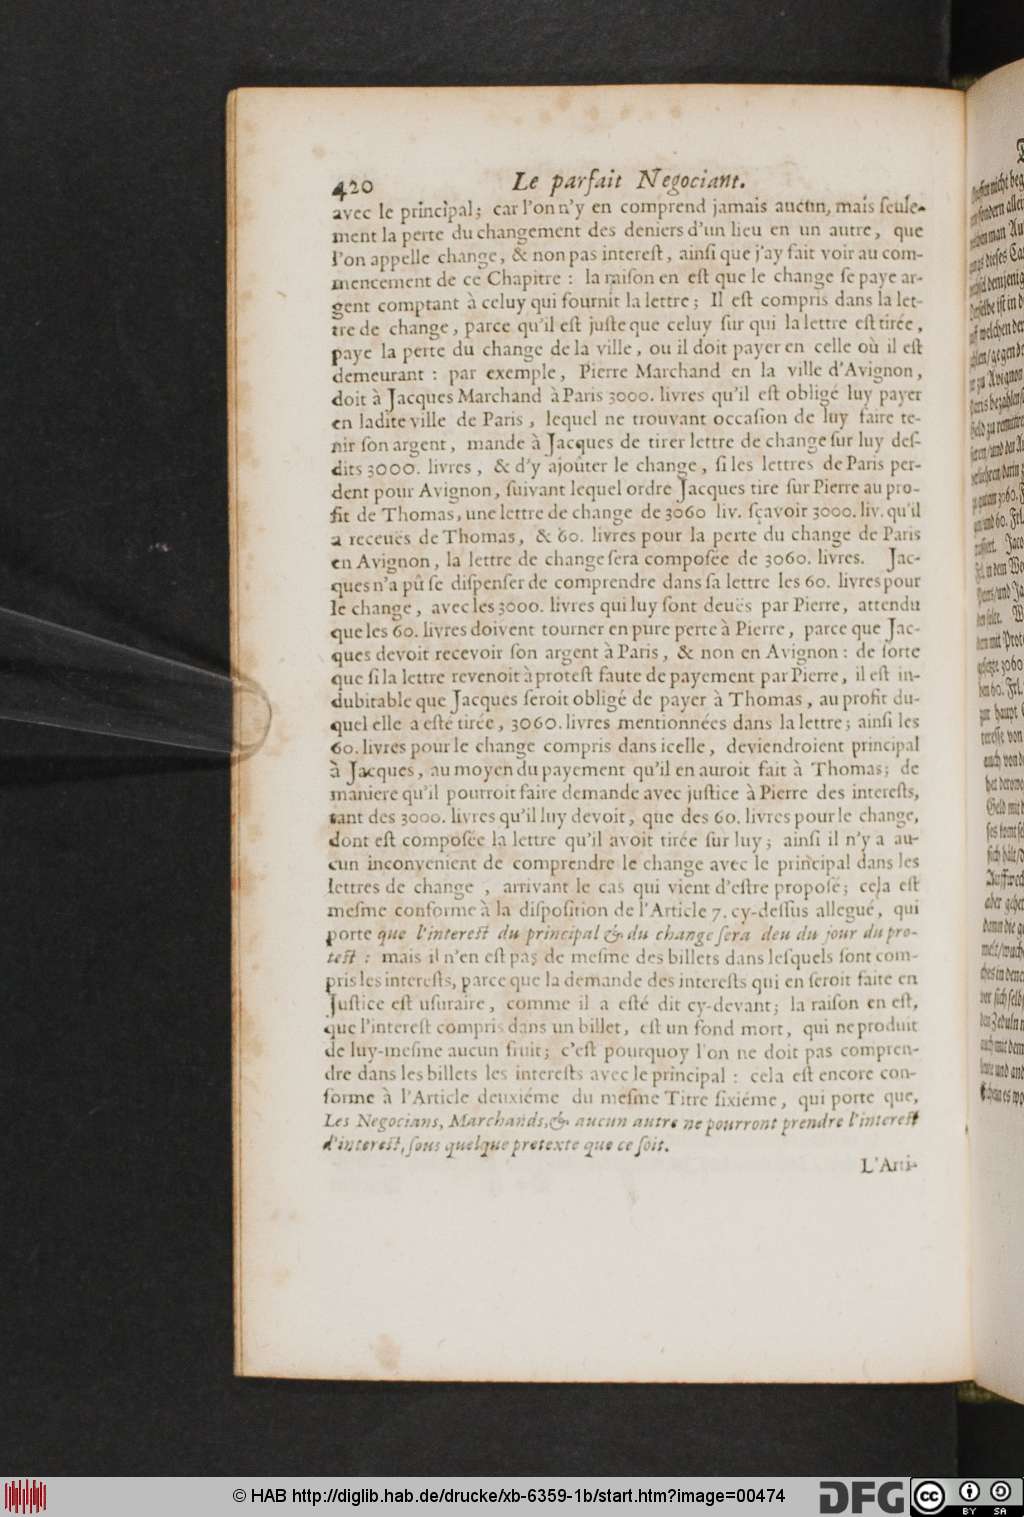 420 Le parfait Negociant.
avec le principal; car l'on n'y en comprend jamais aucun, mais seule-
ment la perte du changement des deniers d'un lieu en un autre, que
l'on appelle change, & non pas interest, ainsi que j'ay fait voir au com-
mencement de ce Chapitre : la raison en est que le change se paye ar-
gent comptant à celuy qui fournit la lettre; Il est compris dans la let-
tre de change, parce qu'il est juste que celuy sur qui la lettre est tirée,
paye la perte du change de la ville, ou il doit payer en celle où il est
demeurant : par exemple, Pierre Marchand en la ville d'Avignon,
doit à Jacques Marchand à Paris 3000. livres qu'il est obligé luy payer
en ladite ville de Paris, lequel ne trouvant occasion de luy faire te-
nir son argent, mande à Jacques de tirer lettre de change sur luy des-
dits 3000. livres, & d'y ajoûter le change, si les lettres de Paris per-
dent pour Avignon, suivant lequel ordre Jacques tire sur Pierre au pro-
fit de Thomas, une lettre de change de 3060 liv. sçavoir 3000. liv. qu'il
a receuës de Thomas, & 60. livres pour la perte du change de Paris
en Avignon, la lettre de change sera composée de 3060. livres. Jac-
ques n'a pû se dispenser de comprendre dans sa lettre les 60. livres pour
le change, avec les 3000. livres qui luy sont deuës par Pierre, attendu
que les 60. livres doivent tourner en pure perte à Pierre, parce que Jac-
ques devoit recevoir son argent à Paris, & non en Avignon : de sorte
que si la lettre revenoit à protest faute de payement par Pierre, il est in-
dubitable que Jacques seroit obligé de payer à Thomas, au profit du-
quel elle a esté tirée, 3060. livres mentionnées dans la lettre; ainsi les
60. livres pour le change compris dans icelle, deviendroient principal
à Jacques, au moyen du payement qu'il en auroit fait à Thomas; de
maniere qu'il pourroit faire demande avec justice à Pierre des interests,
tant des 3000. livres qu'il luy devoit, que des 60. livres pour le change,
dont est composée la lettre qu'il avoit tirée sur luy; ainsi il n'y a au-
cun inconvenient de comprendre le change avec le principal dans les
lettres de change, arrivant le cas qui vient d'estre proposé; cela est
mesme conforme à la disposition de l'Article 7. cy-dessus allegué, qui
porte que l'interest du principal & du change sera deu du jour du pro-
test : mais il n'en est pas de mesme des billets dans lesquels sont com-
pris les interests, parce que la demande des interests qui en seroit faite en
Justice est usuraire, comme il a esté dit cy-devant; la raison en est,
que l'interest compris dans un billet, est un fond mort, qui ne produit
de luy-mesme aucun fruit; c'est pourquoy l'on ne doit pas compren-
dre dans les billets les interests avec le principal : cela est encore con-
forme à l'Article deuxiéme du mesme Titre sixiéme, qui porte que,
Les Negocians, Marchands, & aucun autre ne pourront prendre l'interest
d'interest, sous quelque pretexte que ce soit.
L'Arti-
© HAB http://diglib.hab.de/drucke/xb-6359-1b/start.htm?image=00474
DFG
cc BY SA